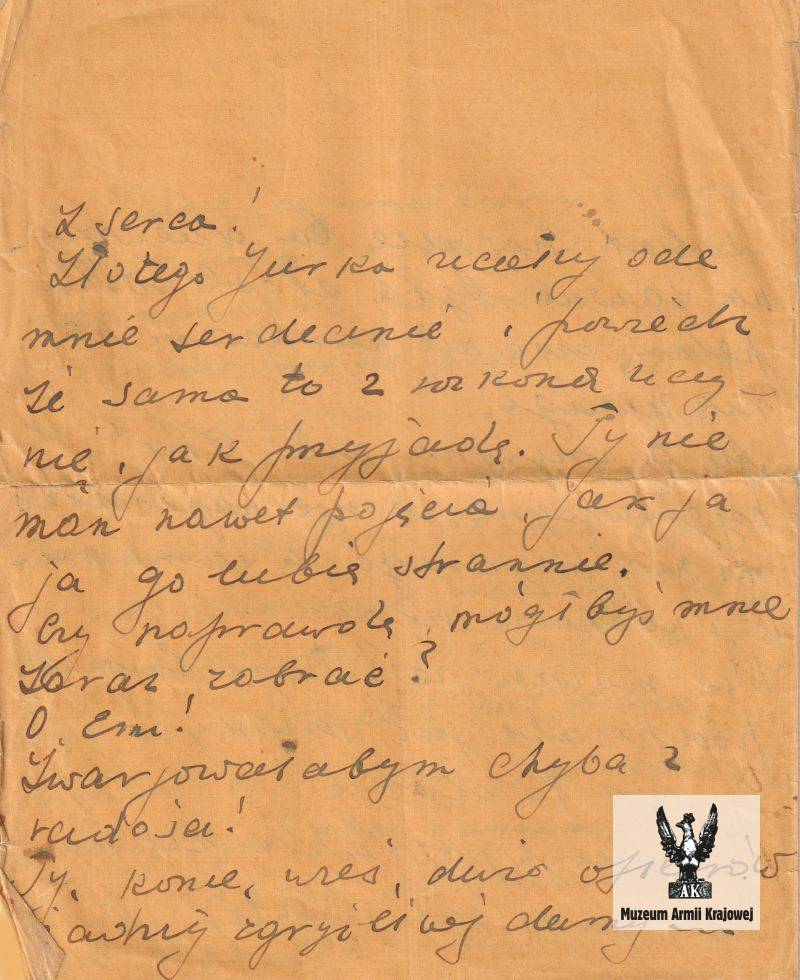 Z serca!
Złotego Jurka ucałuj ode
mnie serdecznie, powiedz
że sama to z ucay-
nię, jak przyjadę. Ty nie
masz nawet pojęcia, jak ja
ja go lubię strasznie.
Czy naprawdę, mógłbyś mnie
zaraz, zabrać?
O, Emi!
Zwarjowałabym chyba z
radości!
Ty, konie, wieś, dużo oficerów
żadnej zgryźliwej damy
AK
Muzeum Armii Krajowej